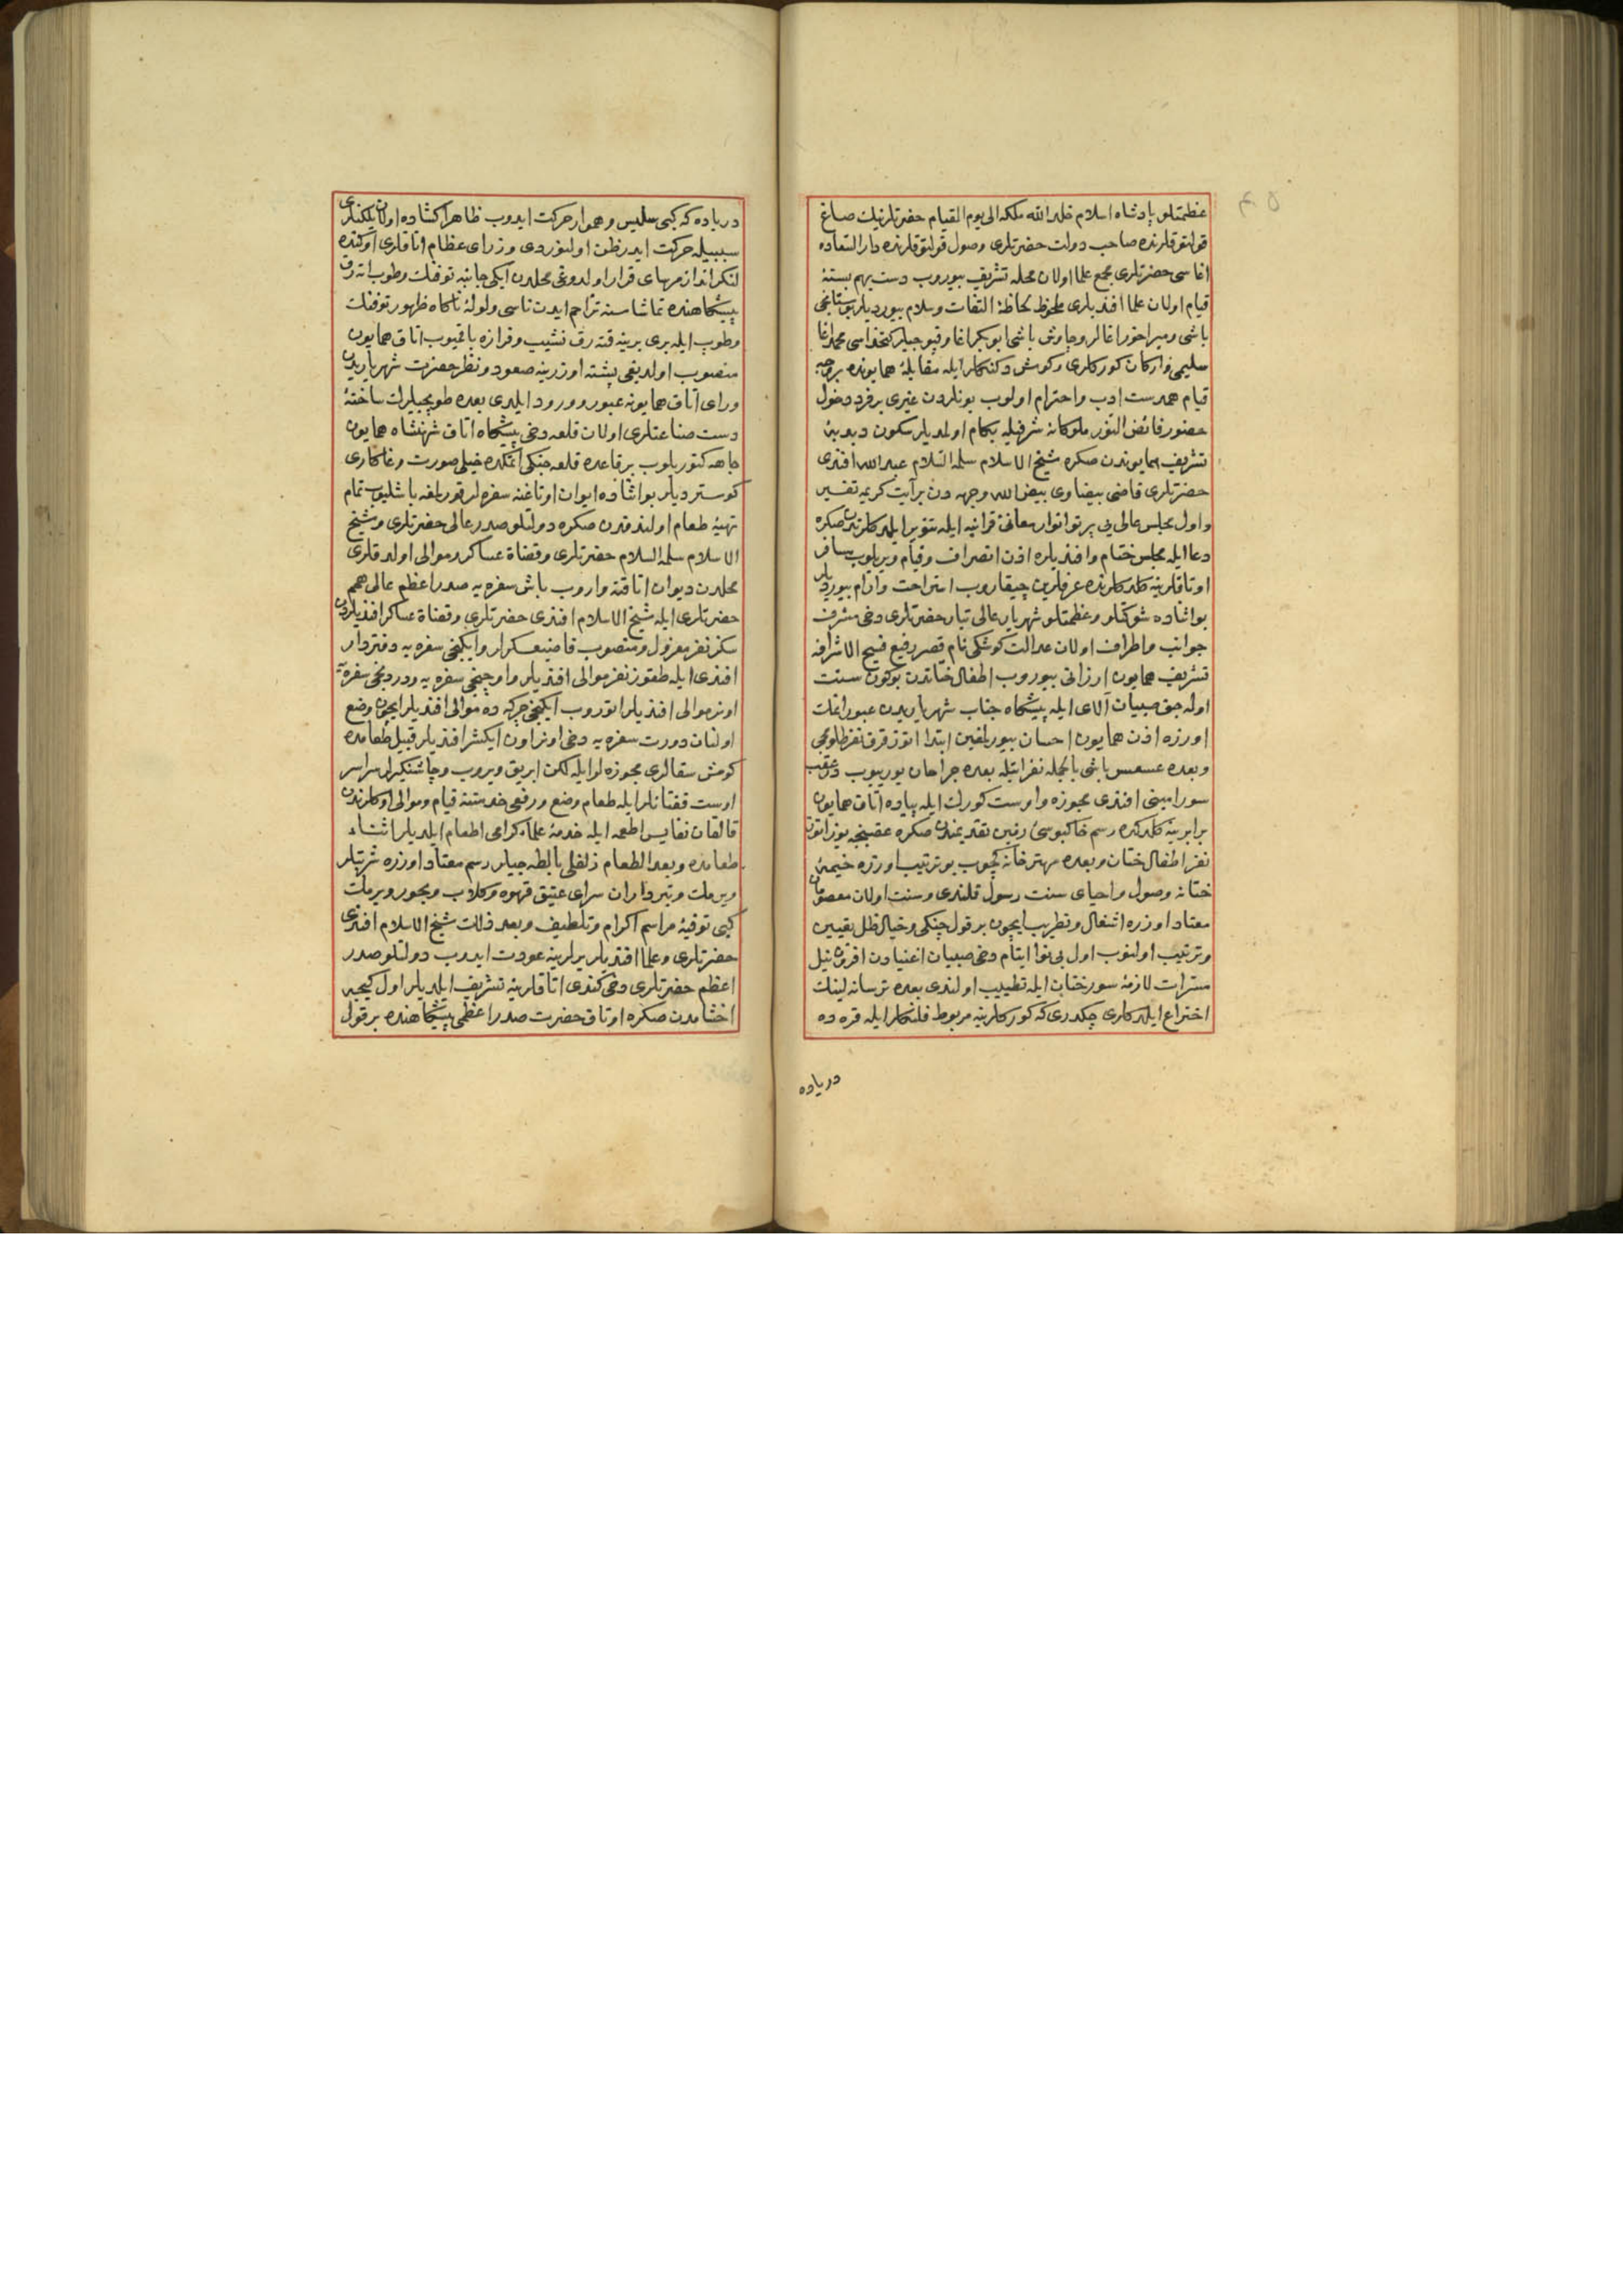 عظمتلو پادشاه اسلام خلد الله ملکه الی یوم القیام حضرتلرینك صاغ
قولتوقلرنده صاحب دولت حضرتلری وصول قولتوقلرنده دار السعاده
اغاسی حضرتلری مجمع علما اولان محله تشریف بیوروب دست برهم بسته
قیام اولان علما افندیلری ملحوظ لحاظۀ التفات وسلام بیوردیلر بوستانجی
باشی ومیراخور اغالر وچاوش باشی ابوبکر اغا وقپوجیلر کتخداسی محمد اغا
سلیمی وارکان کورکلری وکومش دکنکلر ایله مقابلۀ همایونده بروجه
قیام همدست ادب واحترام اولوب بونلردن غیری بر فرد دخول
حضور فائض النور ملوکانه شرفیله بکام اولمدیلر سکون دبدبۀ
تشریف همایوندن صکره شیخ الاسلام سلمه السلام عبد الله افندی
حضرتلری قاضی بیضاوی بیض الله وجهه دن بر آیت کریمه تفسیر
واول مجلس عالی یی پرتو انوار معانئ قرانیه ایله تنویر ایلدکلرندن صکره
دعا ایله مجلس ختام وافندیلره اذن انصراف وقیام ویریلوب
اوتاقلرینه کلدکلرنده عرفلرین چیقاروب استراحت وارام بیوردیلر
بو اثناده شوکتلو وعظمتلو شهریار عالی تبار حضرتلری دخی مشرف
جوانب واطراف اولان عدالت کوشکی نام قصر رفیع فسیح الاشرافه
تشریف همایون ارزانی بیوروب اطفال ختاندن بوکون سنت
اوله جق صبیان آلای ایله پیشکاه جناب شهریاریدن عبور اتمك
اوزره اذن همایون احسان بیورلمغین ابتدا اتوز قرق نفر طلومجی
وبعده عسس باشی بالجمله نفراتیله بعده جراحان یوریوب درعقب
سور امینی افندی مجوزه واوست کورك ایله پیاده اتاق همایون
برابرینه کلدکده رسم خاکبوسئ زمین تقدیمندن صکره عقبنجه یوز اتوز
نفر اطفال ختان وبعده مهترخانه کچوب بو ترتیب اوزره خیمۀ
ختانه وصول واحیای سنت رسول قلندی وسنت اولان معصومان
معتاد اوزره اشغال وتطریب ایچون بر قول چنکی وخیال ظل تعیین
وترتیب اولنوب اول بی نوا ایتام دخی صبیان اغنیادن افزون نیل
مسرات لازمۀ سور ختان ایله تطییب اولندی بعده ترسانه لینك
اختراع ایلدکلری چکدری که کورکلرینه مربوط فلنکلر ایله قره ده
دریاده
دریاده که کبی سلیس وهموار حرکت ایدوب ظاهرا کشاده اولان یلکنلری
سببیله حرکت ایدر ظن اولنوردی وزرای عظام اتاقلری اوکنده
لنکر انداز مرسای قرار اولدوغی محلدن ایکی جانبه توفنك وطوب اته رق
پیشکاهنده تماشاسنه تزاحم ایدن ناسی ولولۀ ناکاه ظهور توفنك
وطوب ایله بری برینه قته رق نشیب وفرازه باقمیوب اتاق همایون
منصوب اولدیغی پشته اوزرینه صعود ونظر حضرت شهریاریدن
ورای اتاق همایونه عبور وورود ایلدی بعده طوپجیلرك ساختۀ
دست صناعتلری اولان قلعه دخی پیشکاه اتاق شهنشاه همایون
جاهه کتوریلوب بر قاعده قلعه جنکی اتمکده خیلی صورت وغاکاری
کوستردیلر بو اثناده ایوان اوتاغنه سفره لر قورلمغه باشلیوب تمام
تهیئۀ طعام اولندقدن صکره دولتلو صدر عالی حضرتلری وشیخ
الاسلام سلمه السلام حضرتلری وقضاة عساکر وموالی اولدقلری
محلدن دیوان اتاقنه واروب باش سفره یه صدر اعظم عالی همم
حضرتلری ایله شیخ الاسلام افندی حضرتلری وقضاة عساکر افندیلردن
سکز نفر معزول ومنصوب قاضیعسکرلر وایکنجی سفره یه دفتردار
افندی ایله طقوز نفر موالی افندیلر واوچنجی سفره یه ودردنجی سفره یه
اونر موالی افندیلر اتوروب ایکنجی چرکه ده موالی افندیلر ایچون وضع
اولنان دورت سفره یه دخی اونر اون ایکشر افندیلر قبیل طعامده
کومش سقالری مجوزه لر ایله لکن ابریق ویروب وچاشنکیرلر سراسر
اوست قفتانلر ایله طعام وضع ورفعی خدمتنه قیام وموالی اوکلرندن
قالقان نفایس اطعمه ایله خدمۀ علماء کرامی اطعام ایلدیلر اثناء
طعامده وبعد الطعام زلفلی بالطه جیلر رسم معتاد اوزره شربتلر
ویرمك وتبرداران سرای عتیق قهوه وکلاب وبخور ویرمك
کبی توفیۀ مراسم اکرام وتلطیف وبعد ذالك شیخ الاسلام افندی
حضرتلری وعلما افندیلر یرلرینه عودت ایدوب دولتلو صدر
اعظم حضرتلری دخی کندی اتاقلرینه تشریف ایلدیلر اول کیجه
اخشامدن صکره اوتاق حضرت صدر اعظمی پیشکاهنده بر قول